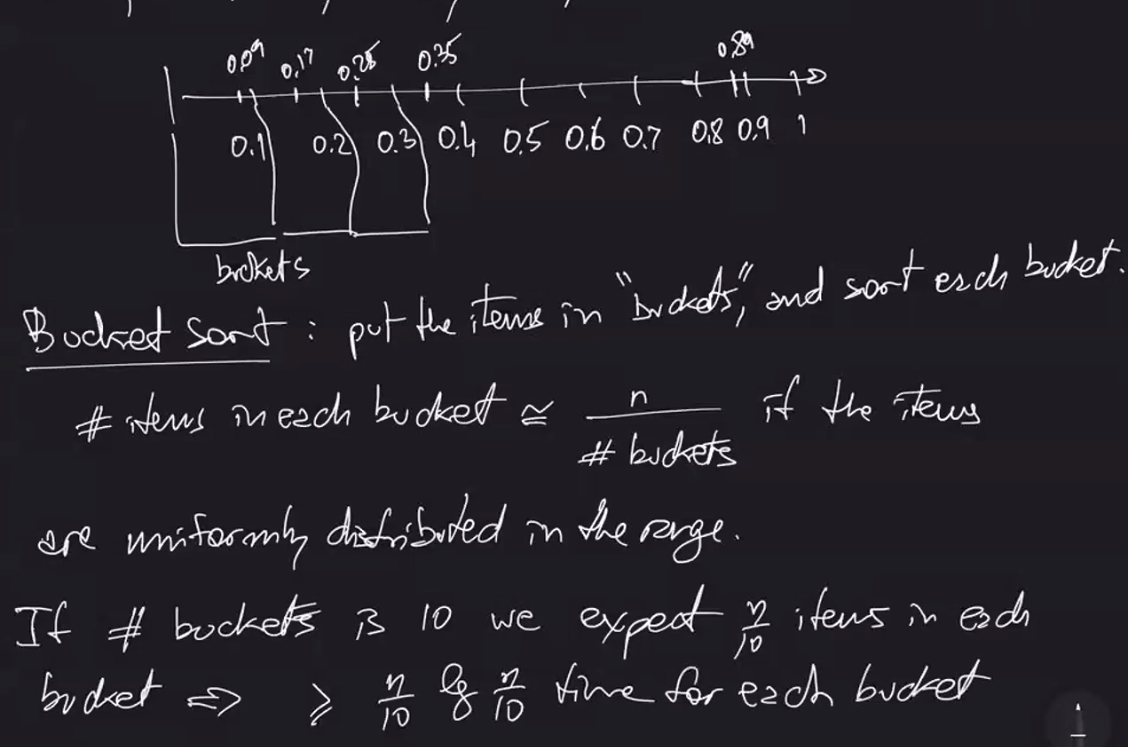 0.09 0.17 0.25 0.35 0.89
0.1 0.2 0.3 0.4 0.5 0.6 0.7 0.8 0.9 1
buckets
Bucket sort : put the items in "buckets", and sort each bucket.
# items in each bucket ≅ n / # buckets if the items
are uniformly distributed in the range.
If # buckets is 10 we expect n/10 items in each
bucket ⇒ ≥ n/10 lg n/10 time for each bucket